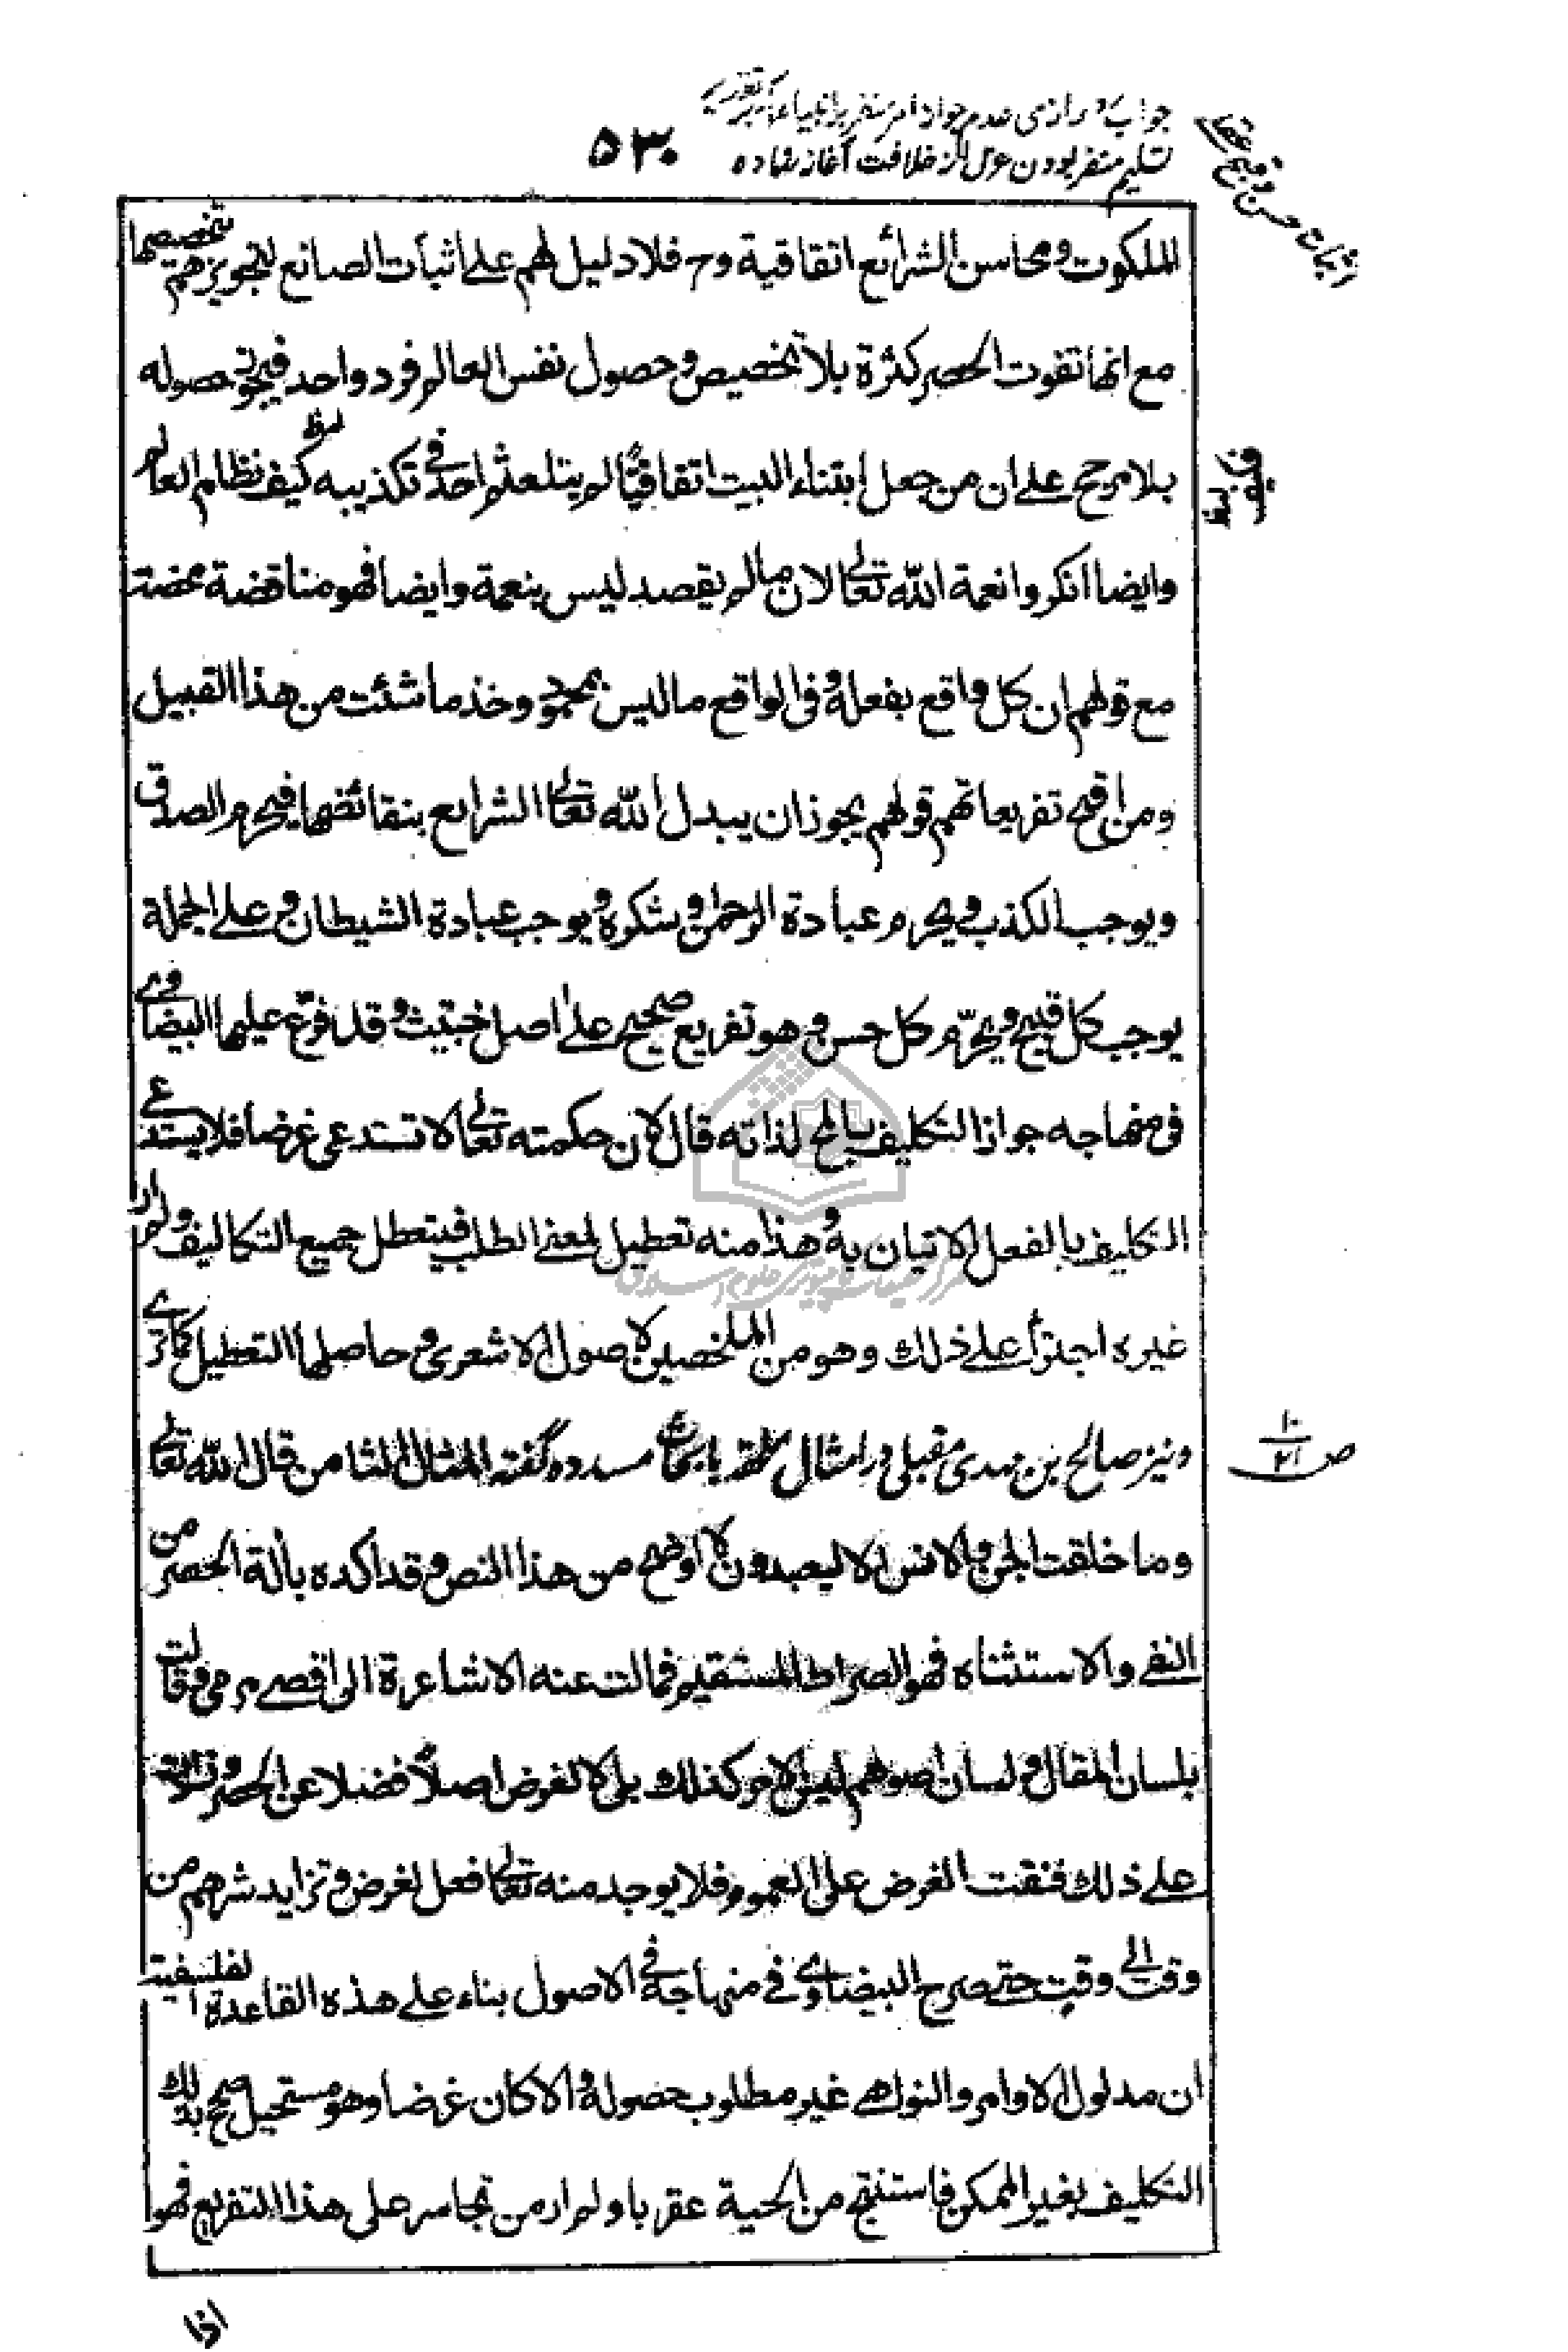 جواب رازی عدم جواز امر منفر بر انبیاء بر تقدیر
تسلیم منفر بودن عزل از خلافت آغاز نهاده
۵۳۰
اثبات حسن و قبح عقلی
الملكوت ومحاسن الشرائع اتفاقية وح فلا دليل لهم على اثبات الصانع لتجويزهم تخصيصها
مع انها تفوت الحصر كثرة بلا تخصيص وحصول نفس العالم فرد واحد فيجوز حصوله
بلا مرجح على ان من جعل ابتناء البيت اتفاقيًا لم يتلعثم احد في تكذيبه كيف نظام العالم
فكيف
وايضا انكروا نعمة الله تعالى لان ما لم يقصد ليس بنعمة وايضا فهو مناقضة محضة
مع قولهم ان كل واقع بفعله وفى الواقع ما ليس بمحمود وخذ ما شئت من هذا القبيل
ومن اقبح تفريعاتهم قولهم يجوز ان يبدل الله تعالى الشرايع بنقائضها فيحرم الصدق
ويوجب الكذب ويحرم عبادة الرحمن وشكره ويوجب عبادة الشيطان وعلى الجملة
يوجب كل قبيح ويحرّم كل حسن وهو تفريع صحيح على اصل خبيث وقد فرّع عليها البيضاوي
فى منهاجه جواز التكليف بالمح لذاته قال لان حكمته تعالى لا تستدعى غرضا فلا يستدعي
التكليف بالفعل الاتيان به وهذا منه تعطيل لمعنى الطلب فيتعطل جميع التكاليف ولم ار
غيره اجترأ على ذلك وهو من الملخصين لاصول الاشعرى وحاصلها التعطيل كما ترى
ونیز صالح بن مهدی مقبلی در امثال ملحقه بابحاث مسدده گفته المثال الثامن قال الله تعالى
ص ۱۰/۲۱
وما خلقت الجن والانس الا ليعبدون لا اوضح من هذا النص وقد اكده بألة الحصر من
النفي والاستثناء فهو الصراط المستقيم فمالت عنه الاشاعرة الى اقصى مرمى وقالت
بلسان المقال ولسان اصولهم ليس الامر كذلك بل لا لغرض اصلاً فضلا عن الحصر وزادت
على ذلك فنفت الغرض على العموم فلا يوجد منه تعالى فعل لغرض وتزايد شرهم من
وقت الى وقت حتى صرح البيضاوي في منهاجه في الاصول بناء على هذه القاعدة الفلسفية
ان مدلول الاوامر والنواهي غير مطلوب حصوله والا كان غرضا وهو مستحيل صح بذلك
التكليف بغير الممكن فاستنتج من الحية عقربا ولم ار من تجاسر على هذا التفريع فهو
اذا